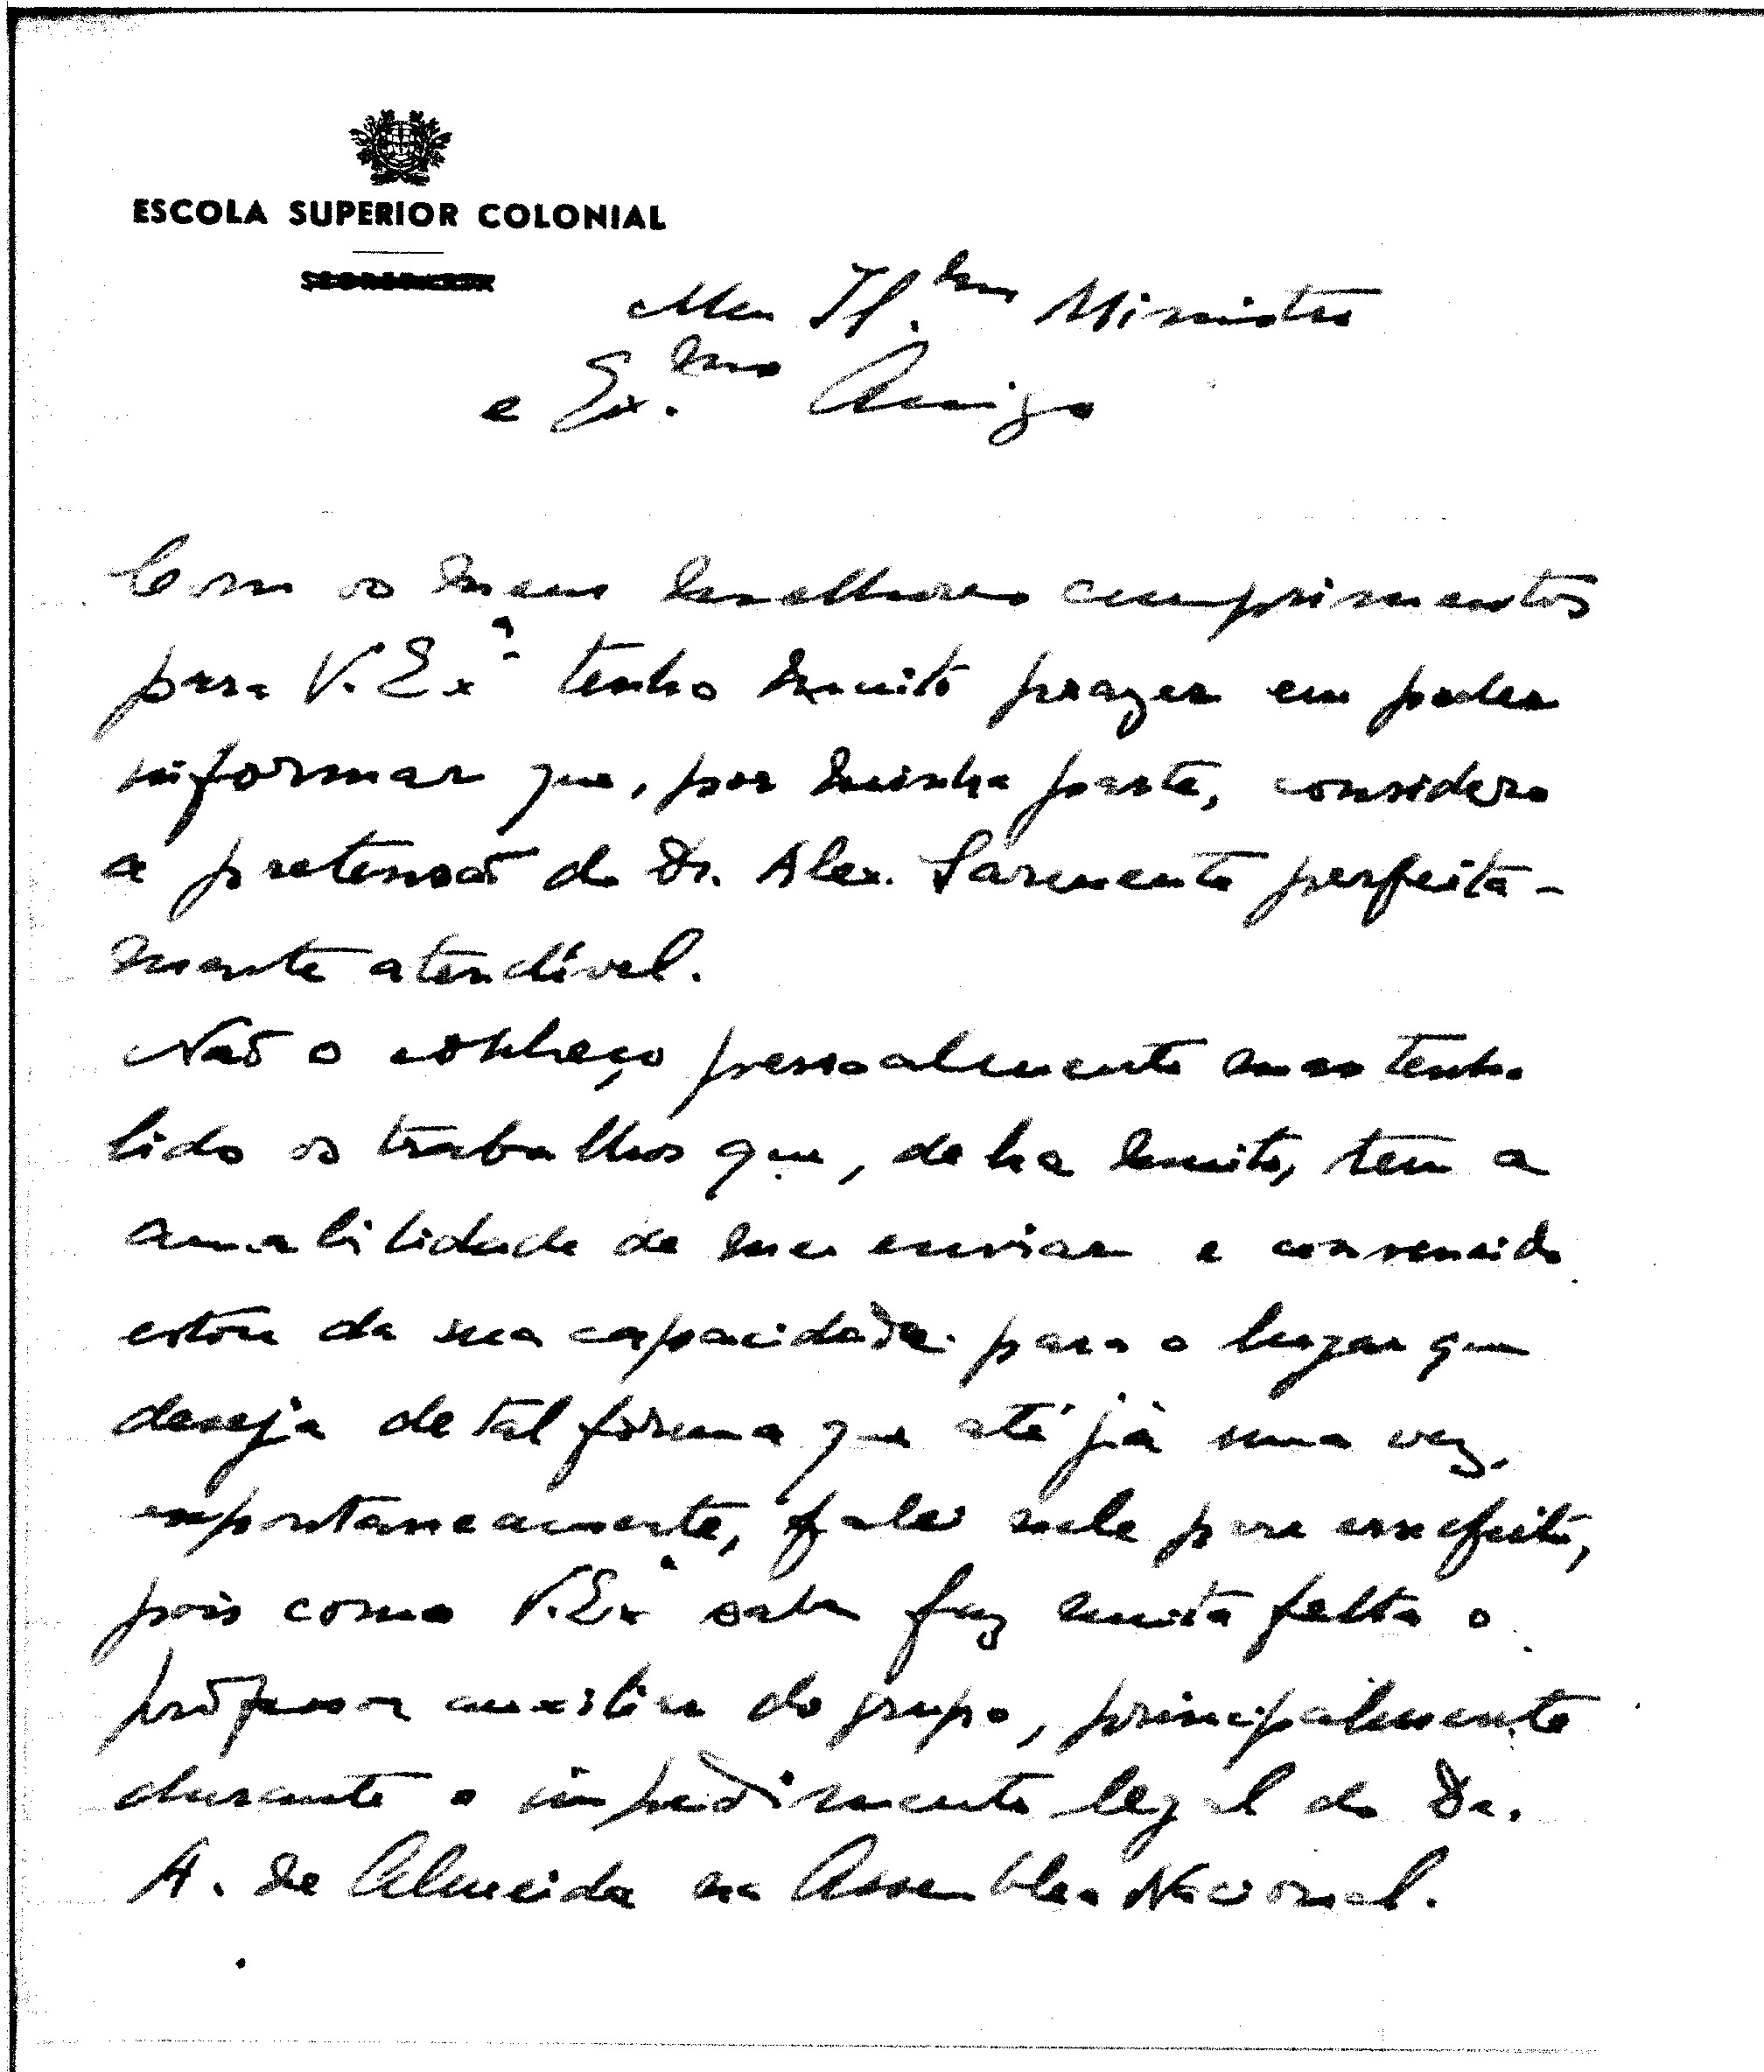 ESCOLA SUPERIOR COLONIAL
SECRETARIA
Meu Il.mo Ministro
e Ex.mo Amigo
Com os meus melhores cumprimentos
para V. Exª tenho muito prazer em poder
informar que, por minha parte, considero
a pretensão do Dr. Alex. Sarmento perfeita-
mente atendível.
Não o conheço pessoalmente mas tenho
lido os trabalhos que, de ha muito, tem a
amabilidade de me enviar e convencido
estou da sua capacidade para o lugar que
deseja de tal fórma que até já uma vez,
espontaneamente, falei nele para esse efeito,
pois como V. Exª sabe faz muita falta o
professor auxiliar do grupo, principalmente
durante o impedimento legal do Dr.
A. de Almeida na Assemblea Nacional.